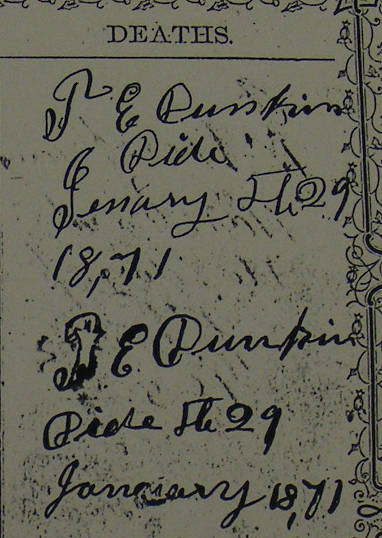 DEATHS.
T E Dunkin
Dide
Jenuary The 29
18,71
T E Dunkin
Dide The 29
Janauary 18,71